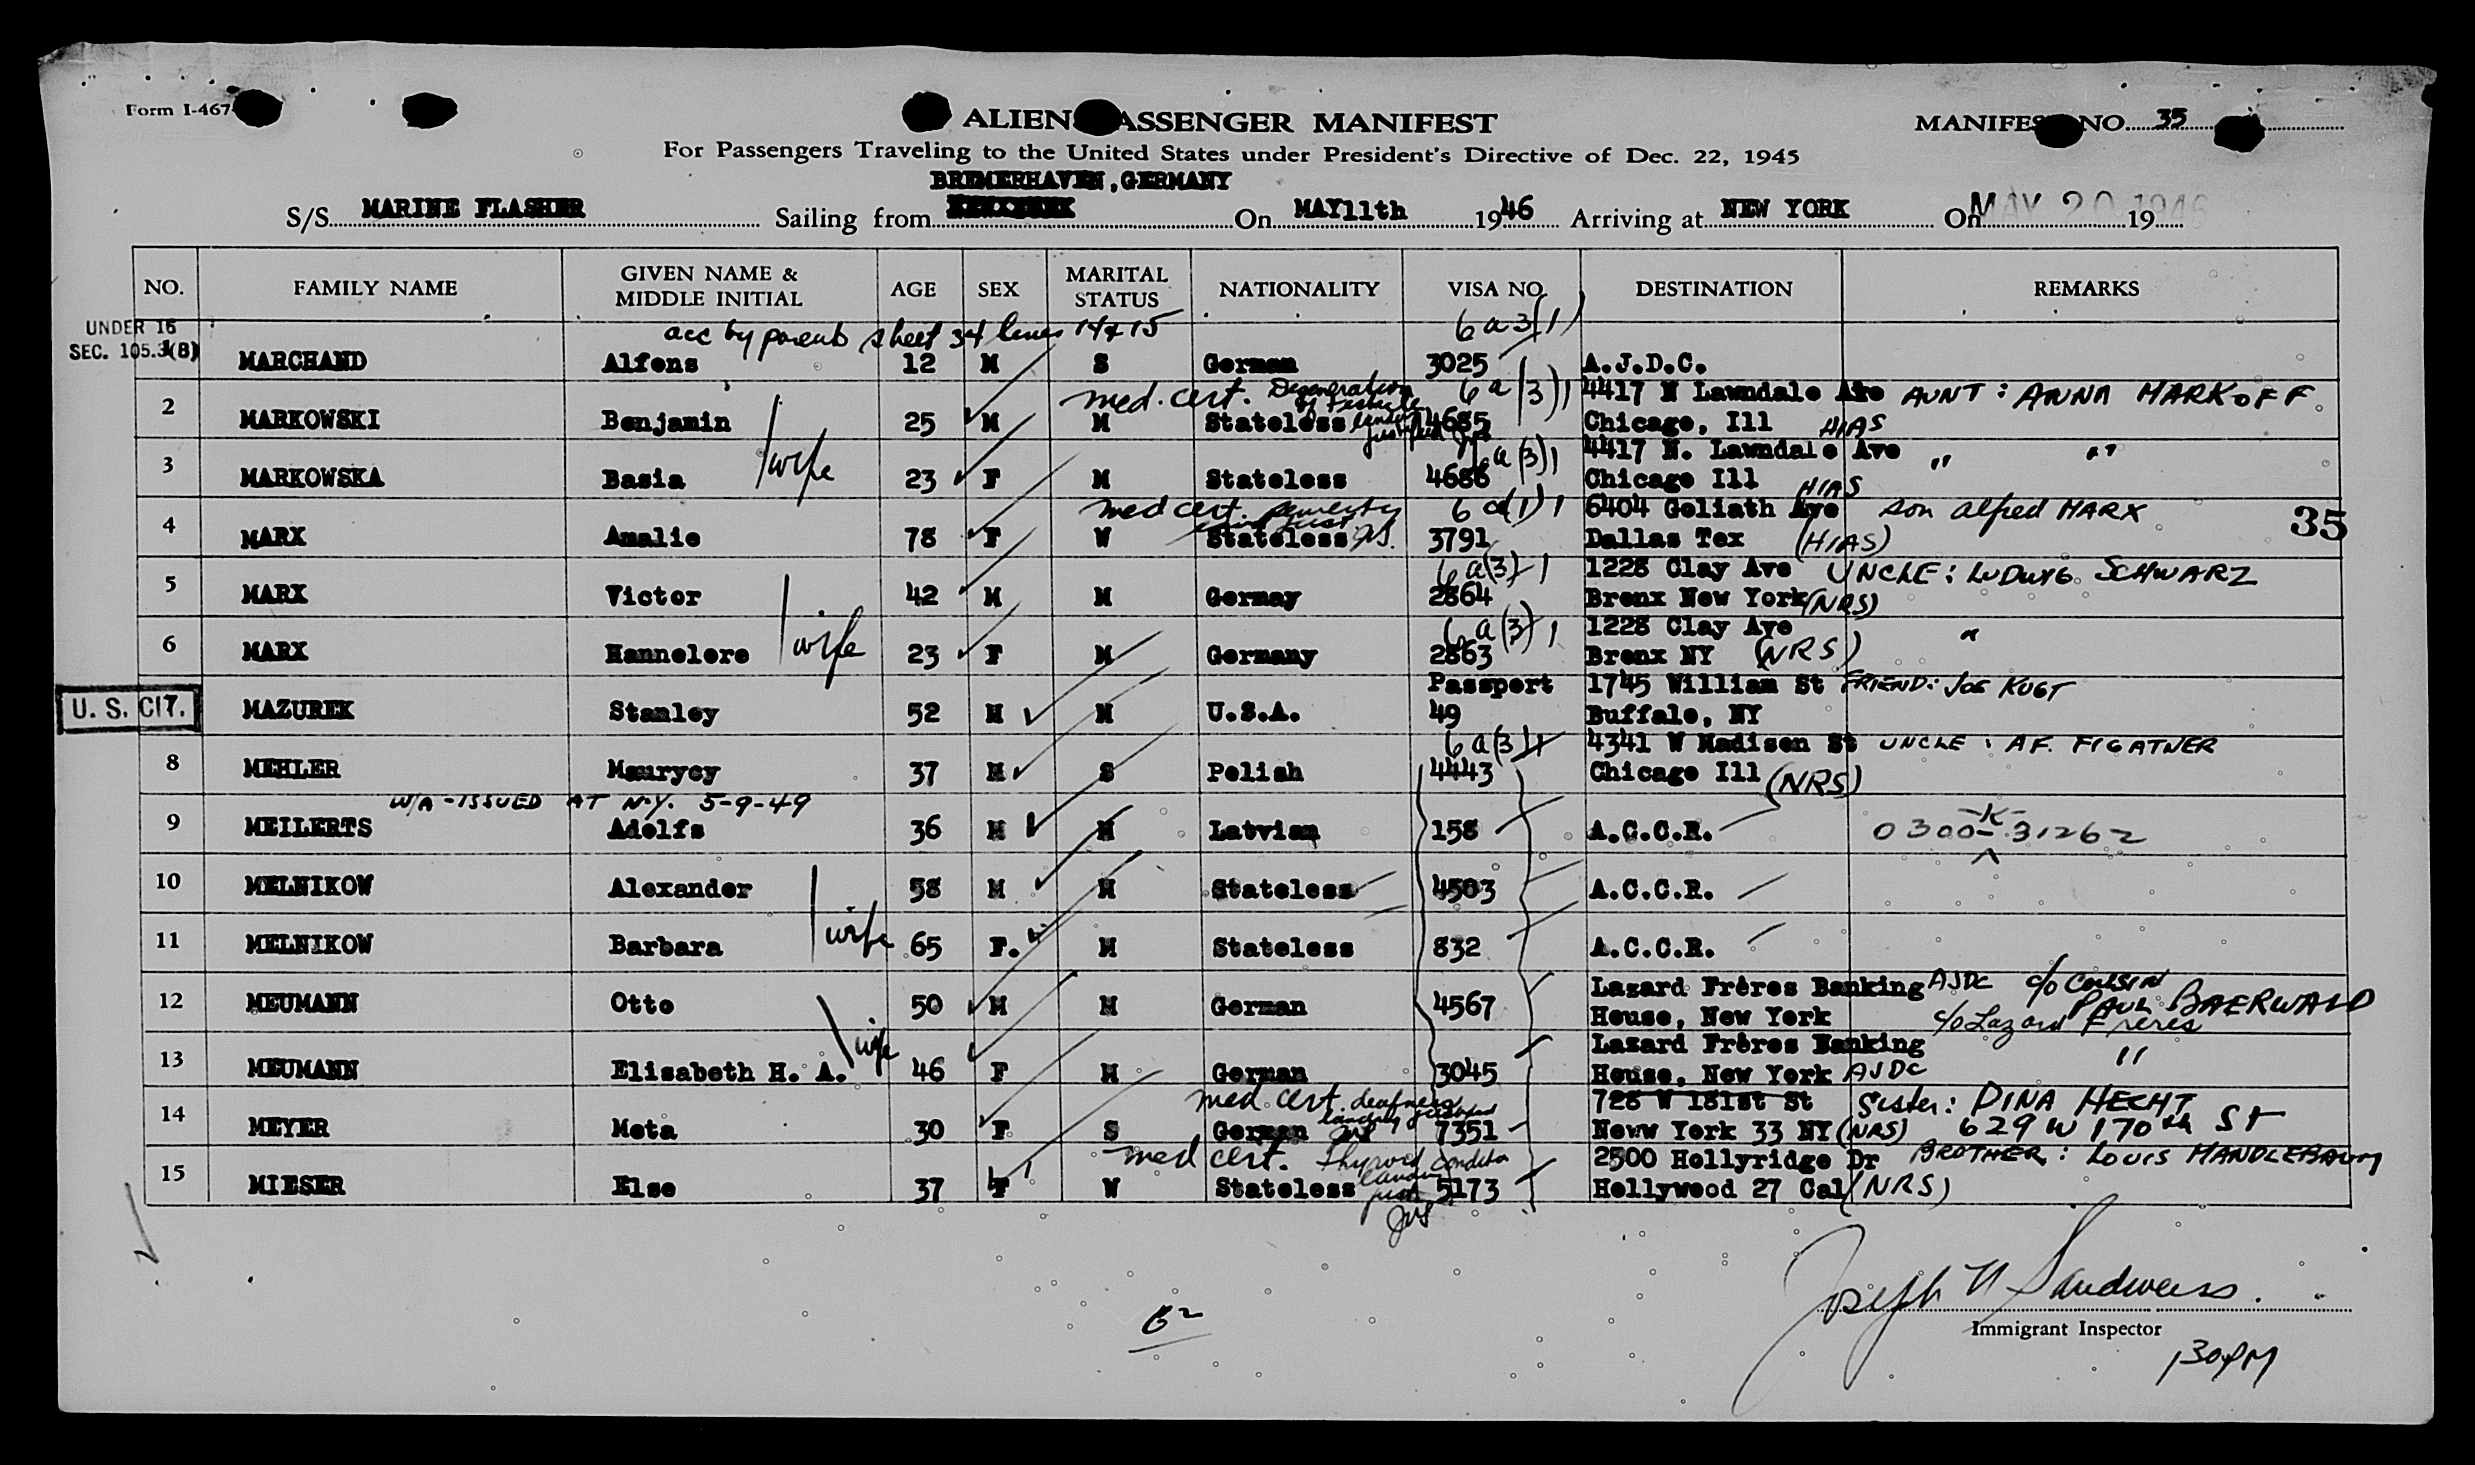 Form I-467
ALIEN PASSENGER MANIFEST
MANIFEST NO. 35
For Passengers Traveling to the United States under President's Directive of Dec. 22, 1945
BREMERHAVEN, GERMANY
S/S MARINE FLASHER Sailing from On MAY 11th 1946 Arriving at NEW YORK On MAY 20 1946 19
NO. FAMILY NAME GIVEN NAME & MIDDLE INITIAL AGE SEX MARITAL STATUS NATIONALITY VISA NO. DESTINATION REMARKS
UNDER 16 acc by parents sheet 34 lines 14 & 15 6 a 3(1)
SEC. 105.3(B) MARCHAND Alfons 12 M S German 3025 A.J.D.C.
med. cert. Degeneration of Testicle 6 a (3) 1 4417 N Lawndale Ave AUNT: ANNA MARKOFF
2 MARKOWSKI Benjamin 25 M M Stateless 4685 Chicago, Ill HIAS
wife 6 a (3) 1 4417 N. Lawndale Ave " "
3 MARKOWSKA Basia 23 F M Stateless 4686 Chicago Ill HIAS
med cert. 6 a(1) 1 6404 Goliath Ave son Alfred MARX
4 MARX Amalie 78 F W Stateless 3791 Dallas Tex (HIAS)
35
6 a(3) 1 1228 Clay Ave UNCLE: LUDWIG SCHWARZ
5 MARX Victor 42 M M Germay 2864 Bronx New York (NRS)
wife 6 a (3) 1 1228 Clay Ave "
6 MARX Hannelore 23 F M Germany 2863 Bronx NY (NRS)
Passport 1745 William St FRIEND: JOE KUGT
U. S. CIT. MAZUREK Stanley 52 M M U.S.A. 49 Buffalo, NY
6 a(3) 1 4341 W Madison St UNCLE: AF. FIGATNER
8 MEHLER Maurycy 37 M S Polish 4443 Chicago Ill (NRS)
W/A - ISSUED AT N.Y. 5-9-49
9 MEILERTS Adolfs 36 M M Latvian 158 A.C.C.R. 0300-K-31262
10 MELNIKOW Alexander 58 M M Stateless 4503 A.C.C.R.
11 MELNIKOW Barbara wife 65 F. M Stateless 832 A.C.C.R.
Lazard Frères Banking AJDC c/o COUSIN PAUL BAERWALD
12 MEUMANN Otto 50 M M German 4567 House, New York c/o Lazard Freres
wife Lazard Frères Banking "
13 MEUMANN Elisabeth H. A. 46 F M German 3045 House, New York AJDC
med. cert. deafness 728 W 181st St Sister: DINA HECHT
14 MEYER Meta 30 F S German 7351 Neww York 33 NY (NRS) 629 W 170th St
med cert. Thyroid condition 2500 Hollyridge Dr BROTHER: LOUIS MANDLEBAUM
15 MIESER Else 37 F W Stateless 5173 Hollywood 27 Cal (NRS)
JVS
Joseph N Sandweiss
62
Immigrant Inspector
130PM